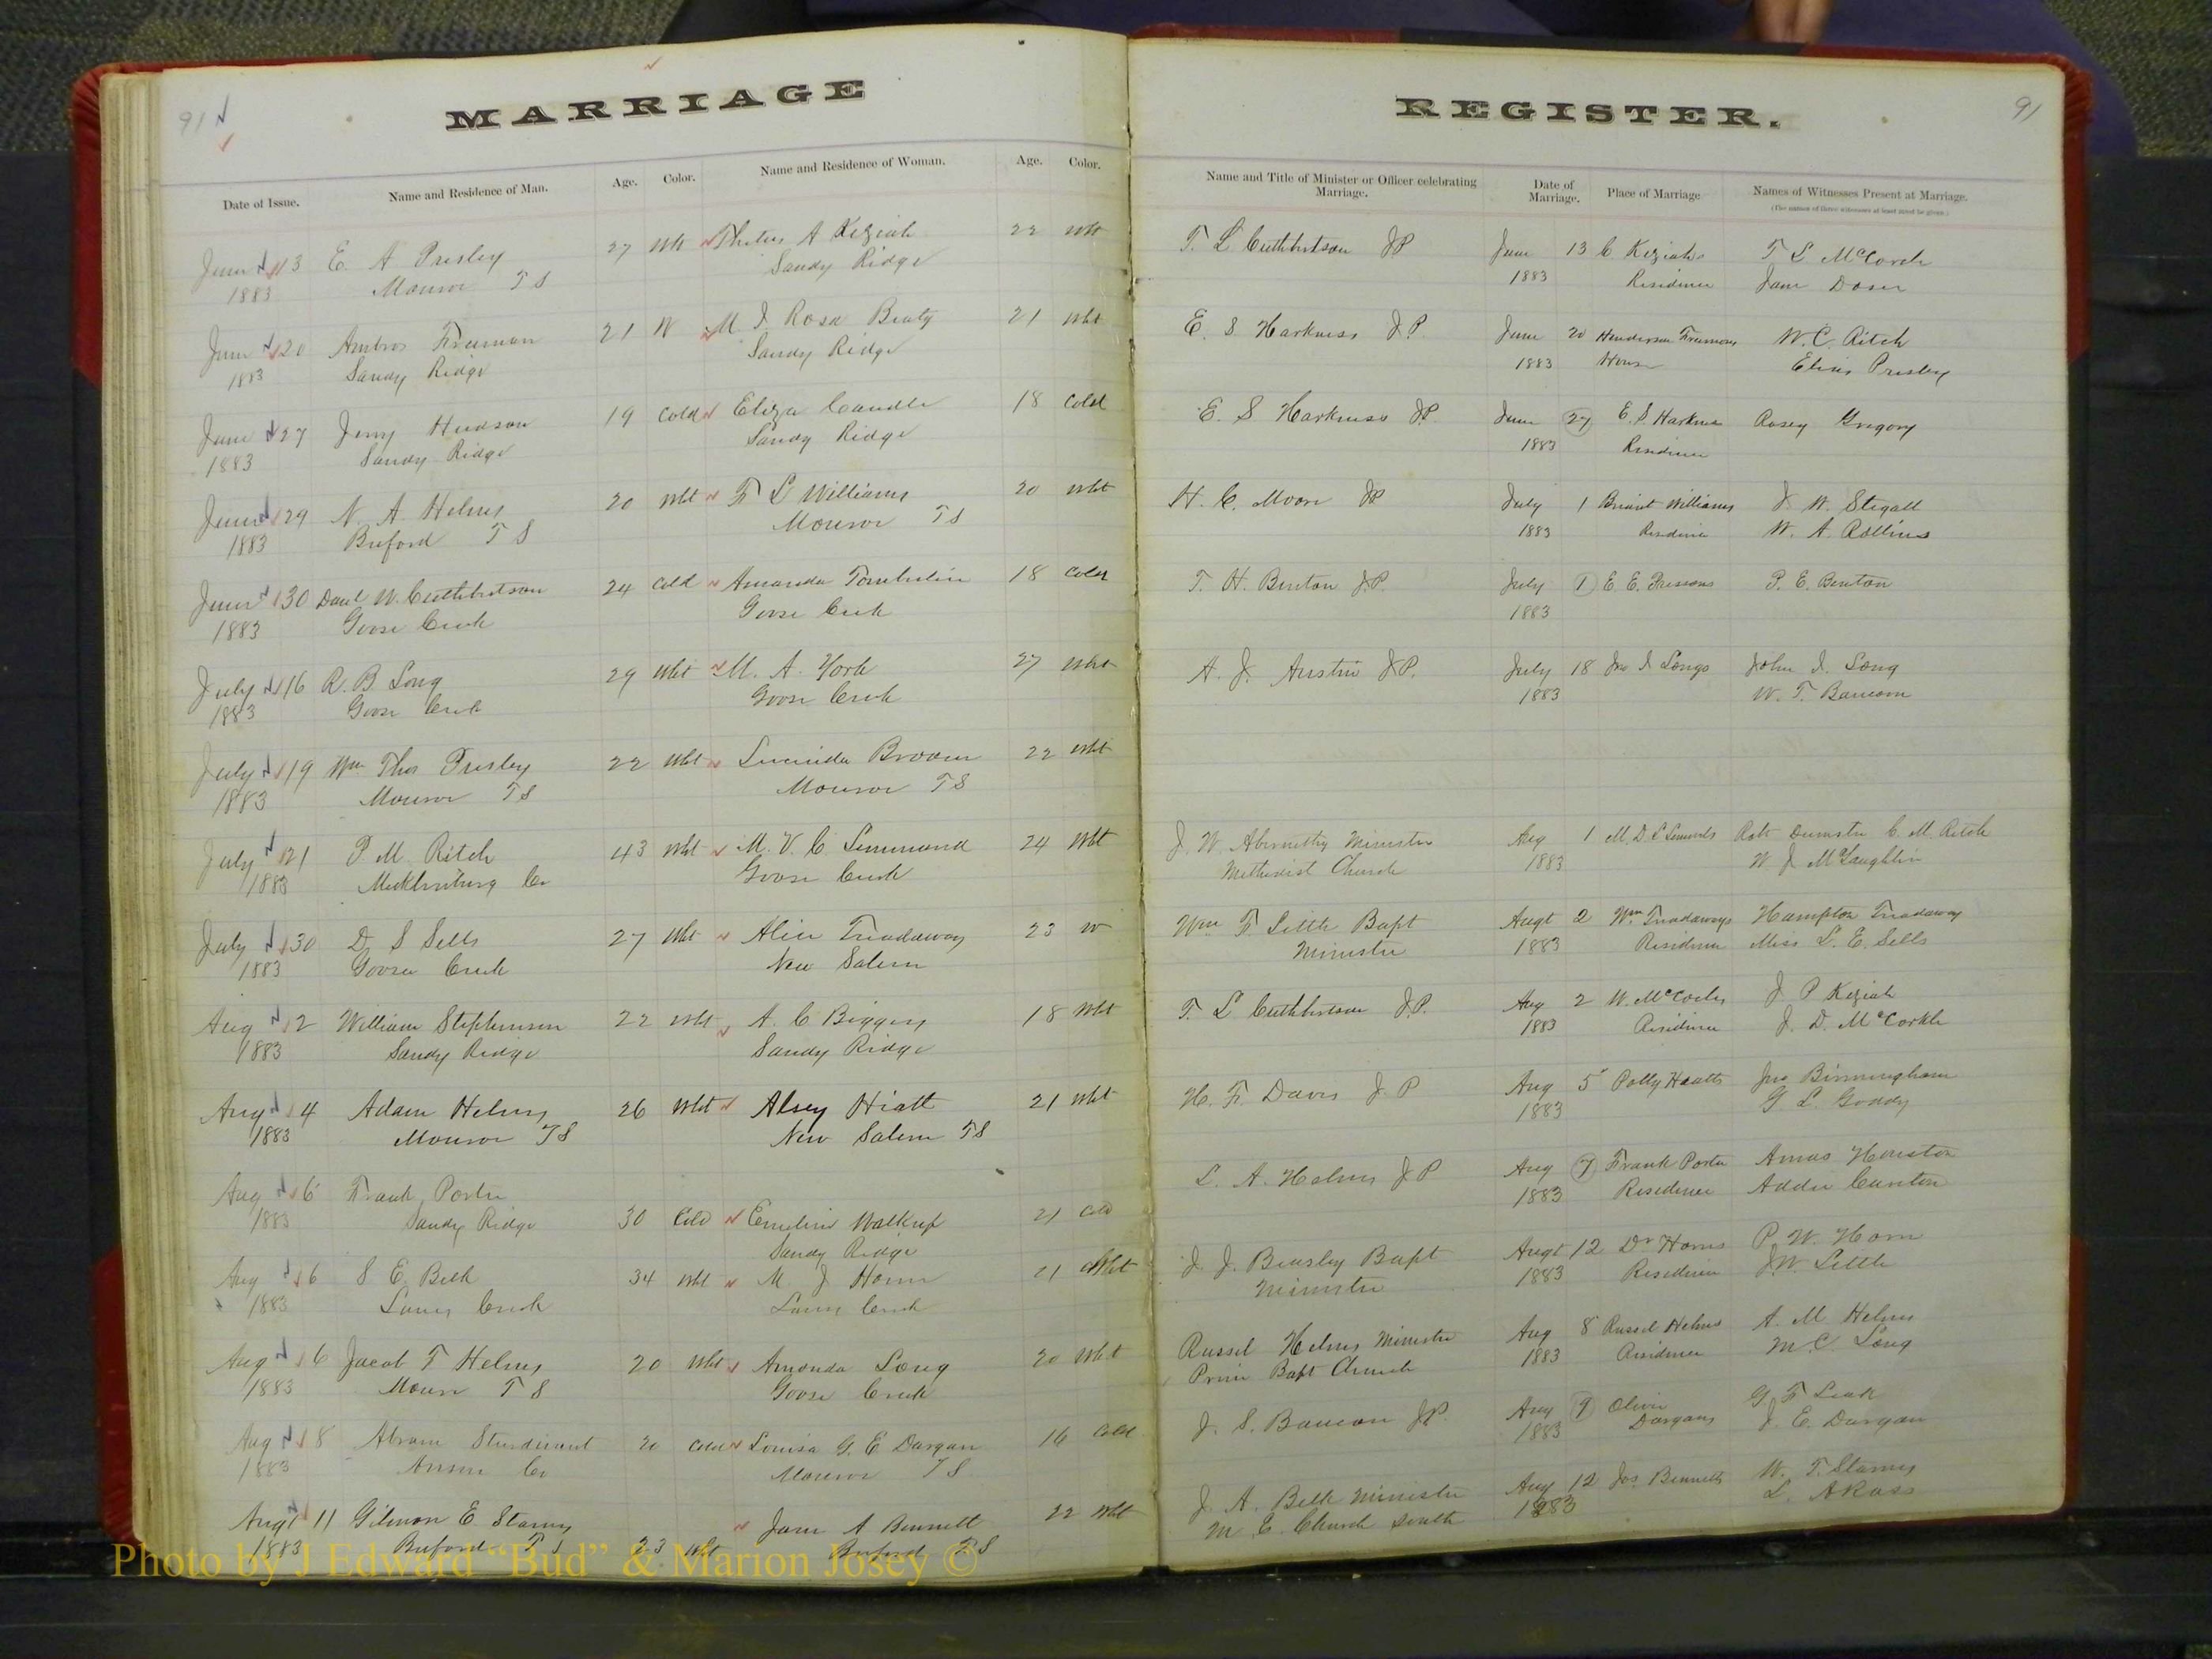 91
MARRIAGE
Date of Issue. Name and Residence of Man. Age. Color. Name and Residence of Woman. Age. Color.
June 13 E. A Presley 27 Wht A Keziah 22 Wht
1883 Monroe T S Sandy Ridge
June 20 Ambros Freeman 21 W M J Rosa Beaty 21 Wht
1883 Sandy Ridge Sandy Ridge
June 27 Jerry Hudson 19 Cold Eliza Caudle 18 Cold
1883 Sandy Ridge Sandy Ridge
June 29 N. A Helms 20 Wht F L Williams 20 Wht
1883 Buford T S Monroe T S
June 30 Danl W. Cuthbertson 24 Cold Amanda Tomberlin 18 Cold
1883 Goose Creek Goose Creek
July 16 R. B Long 29 Wht M. A. York 27 Wht
1883 Goose Creek Goose Creek
July 19 Wm Thos Presley 22 Wht Lucinda Broom 22 Wht
1883 Monroe T S Monroe T S
July 21 P. M. Ritch 43 Wht M. V. C. Simmond 24 Wht
1883 Mecklenburg Co Goose Creek
July 30 D S Sells 27 Wht Alice Treadaway 23 W
1883 Goose Creek New Salem
Aug 2 William Stephenson 22 Wht A. C Biggers 18 Wht
1883 Sandy Ridge Sandy Ridge
Aug 4 Adam Helms 26 Wht Alsey Hiatt 21 Wht
1883 Monroe T S New Salem T S
Aug 6 Frank Porter
1883 Sandy Ridge 30 Cold Emeline Walkup 21 Cold
Sandy Ridge
Aug 6 S E. Belk 34 Wht M J Horn 21 Wht
1883 Lanes Creek Lanes Creek
Aug 6 Jacob F Helms 20 Wht Amanda Long 20 Wht
1883 Monro T S Goose Creek
Aug 8 Abram Sturdivant 20 Cold Louisa G. E Dargan 16 Cold
1883 Anson Co Monroe T S
Augt 11 Gilmon E Starnes Jane A Bennett 22 Wht
1883 Buford T S 23 Wht Buford T S
REGISTER.
91
Name and Title of Minister or Officer celebrating Marriage. Date of Marriage. Place of Marriage Names of Witnesses Present at Marriage.
(The names of three witnesses at least must be given.)
T. L Cuthbertson JP June 13 C Keziahs T L McCorcle
1883 Residence Jane Doser
E. S Harkness J.P. June 20 Henderson Freemons W. C. Ritch
1883 House Presley
E. S Harkness J.P. June 27 E. S. Harkness Rosey Gregory
1883 Residence
H. C. Moore JP July 1 Briant Williams J. W. Stegall
1883 Residence W. A. Rollins
T. H. Benton J.P. July 1 E E. Pressons P. E. Benton
1883
A. J. Austin J.P. July 18 Jno I Longs John I. Long
1883 W. T. Baucom
J. W. Abernethy Minister Aug 1 M D L C. M. Ritch
Methodist Church 1883 W. J McLaughlin
Wm F. Little Bapt Augt 2 Wm Treadaways Hampton Treadaway
Minister 1883 Residence Miss L. E. Sells
T. L Cuthbertson J.P. Aug 2 W. McCorcles J P Keziah
1883 Residence J. D. McCorkle
H. F. Davis J. P Aug 5 Polly Hiatts Jno Birmingham
1883 G. L. Gordy
L. A. Helms J P Aug 7 Frank Porter Amos Houston
1883 Residence Addie Cureton
J J. Beasley Bapt Augt 12 Dr Horns P. W. Horn
Minister 1883 Residence J W Little
Russel Helms Minister Aug 8 Russel Helms A. M Helms
Prim Bapt Church 1883 Residence M. C. Long
J. S. Baucom J.P. Aug 9 Olivir G. F Leak
1883 Dargans J. E. Dargan
J. A. Belk Minister Aug 12 Jos. Bennetts W. T. Starnes
M. E. Church South 1883 L. A Rass
Photo by J Edward “Bud” & Marion Josey ©